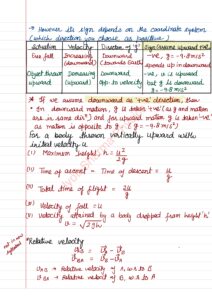 → However its sign depends on the coordinate system
(which direction you choose as positive)
Situation Velocity Direction of 'g' Sign (assume upward +ve)
Free fall Increasing (downward) Downward (towards Earth) -ve, g = -9.8 m/s²
speeds up in downward
Object thrown upward (upward) Downward opp. to velocity -ve, u is upward
but g is downward
g = -9.8 m/s²
* If we assume downward as +ve direction, then
for downward motion, g is taken +ve (as g and motion
are in same dirⁿ) and for upward motion g is taken -ve
as motion is opposite to g. (g = -9.8 m/s²)
for a body thrown vertically upward with
initial velocity u
(i) Maximum height, h = u²/2g
(ii) Time of ascent = Time of descent = u/g
(iii) Total time of flight = 2u/g
(iv) Velocity of fall = u
(v) Velocity attained by a body dropped from height 'h'
v = √2gh
*Relative velocity
V_AB = V_A - V_B
V_BA = V_B - V_A
V_AB → Relative velocity of A, w.r. to B
V_BA → Relative velocity of B, w.r. to A